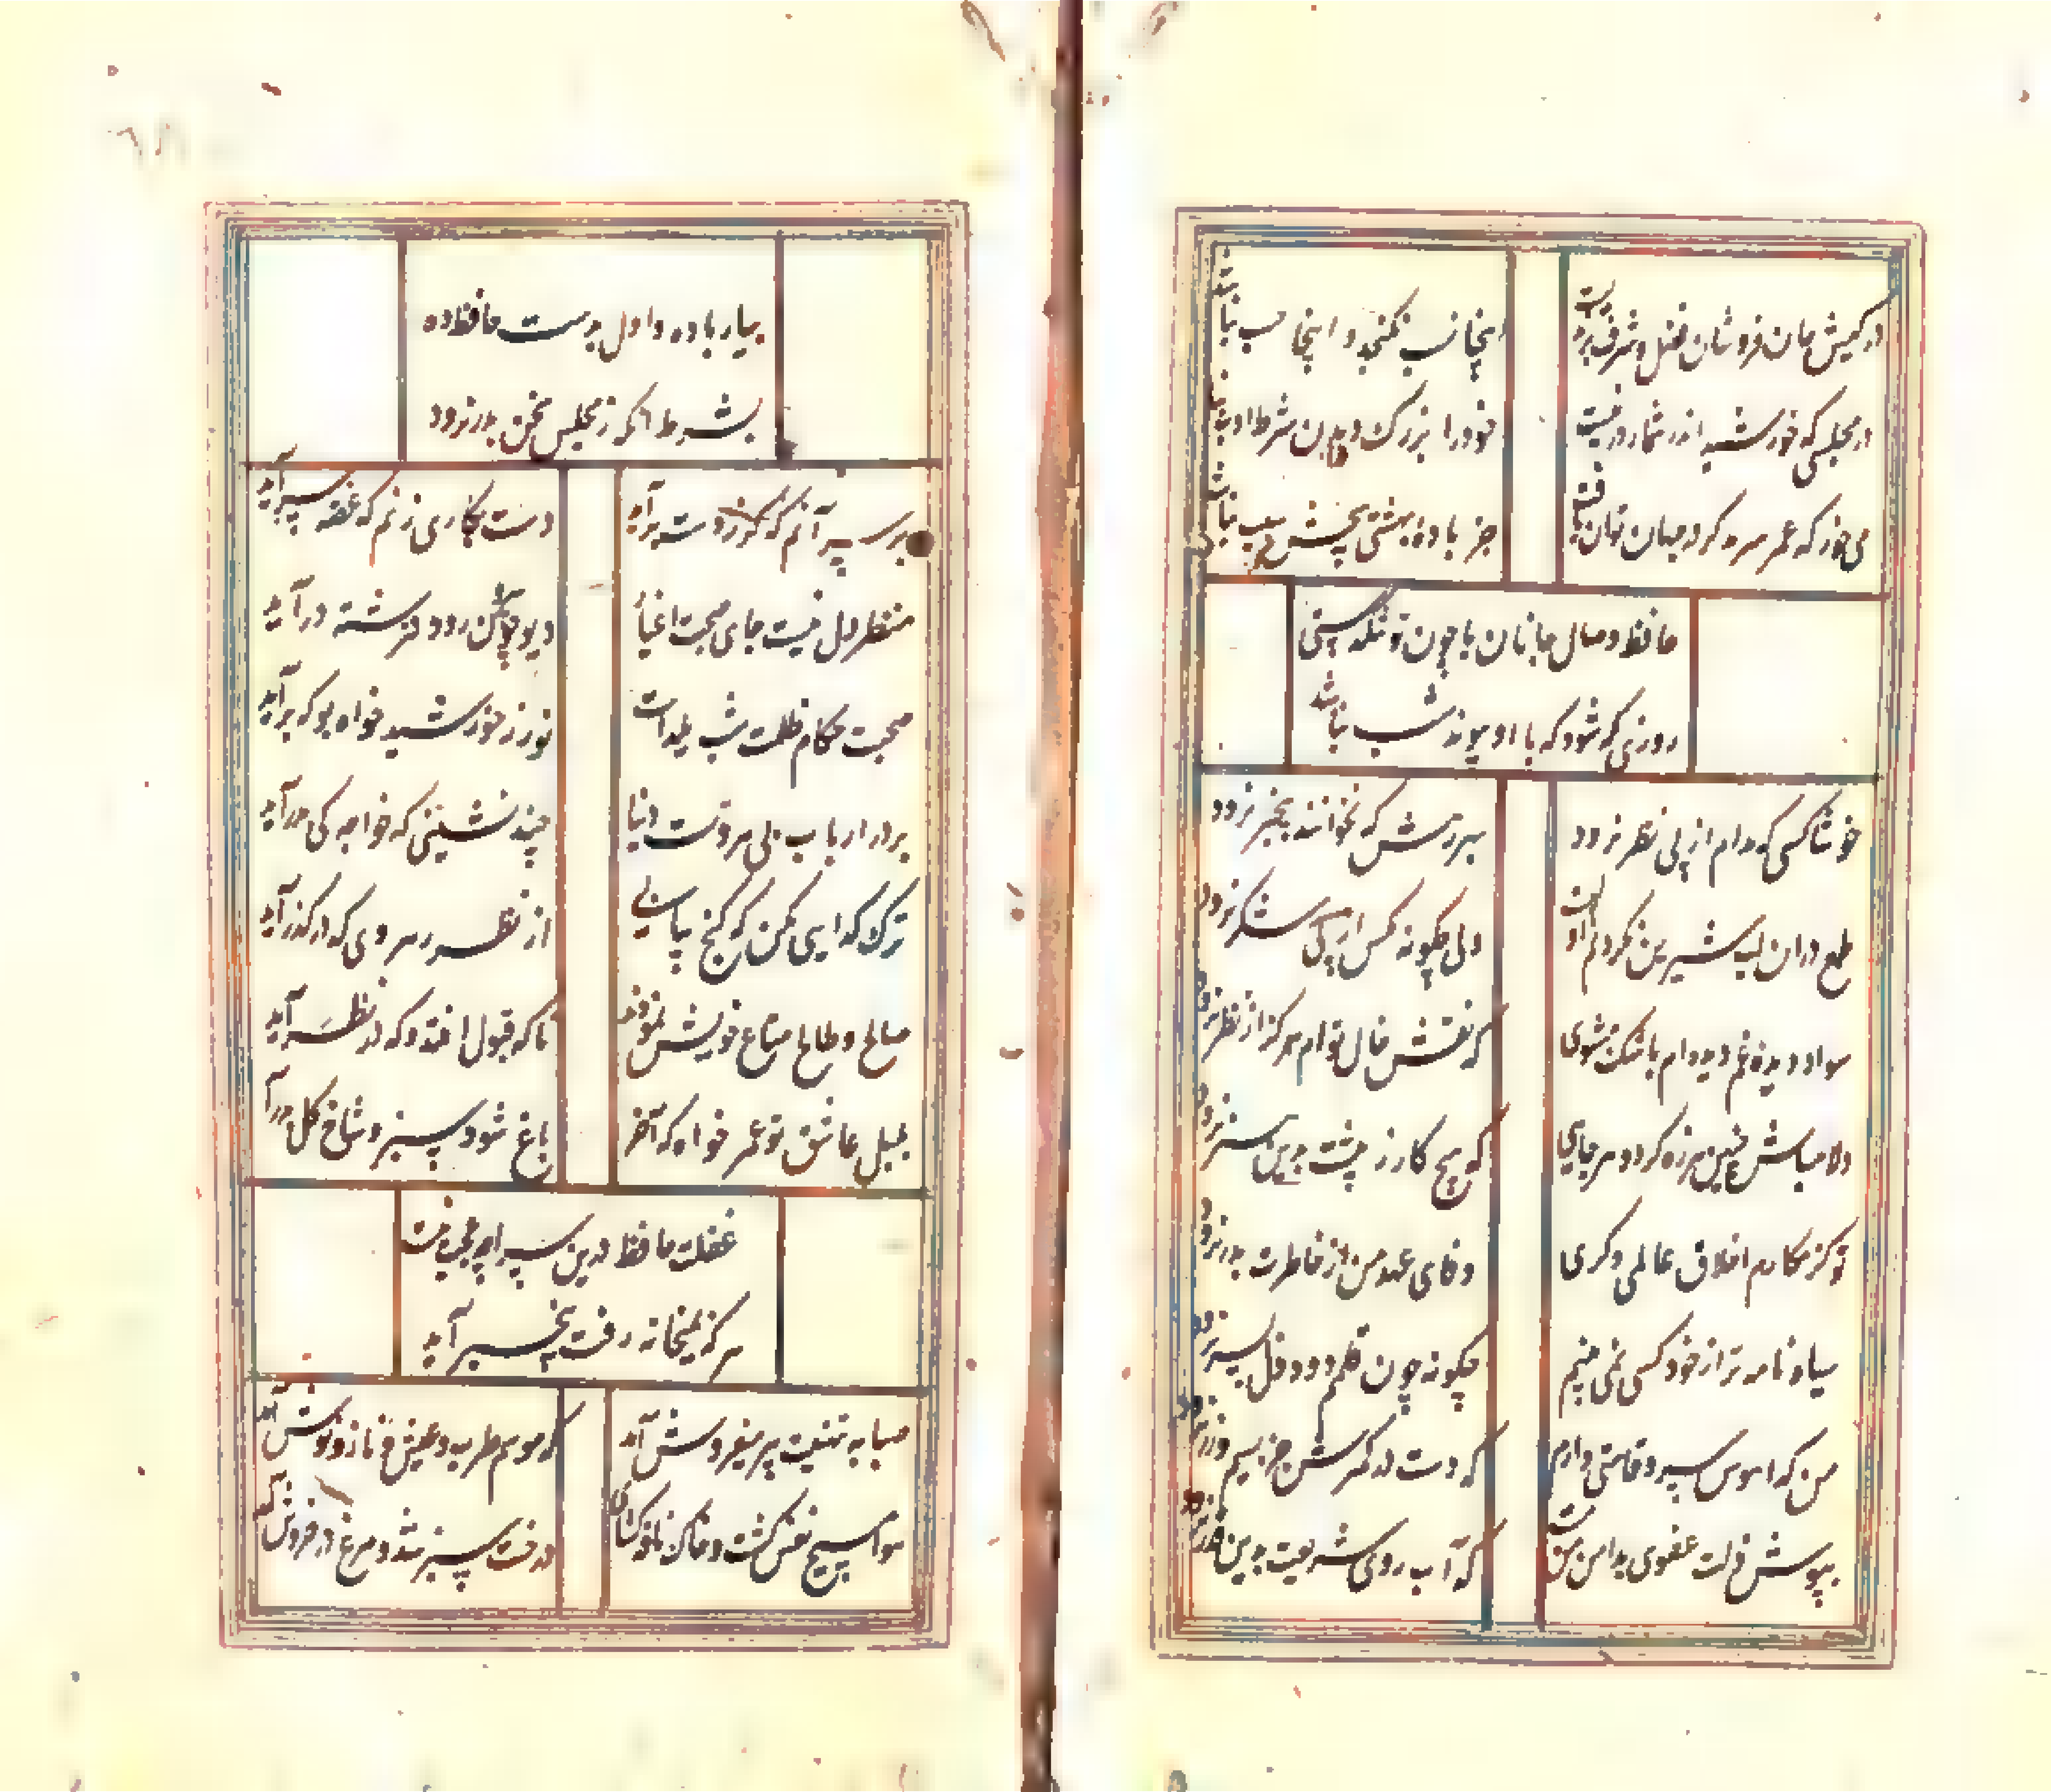 در کیش جان فروشان فضل و شرف برندیست
اینجا نسب نگنجد و اینجا حسب نباشد
در مجلسی که خورشید اندر شمار ذره نیست
خود را بزرگ دیدن شرط ادب نباشد
می خور که عمر سرمد گر در جهان توان یافت
جز باده بهشتی هیچش سبب نباشد
حافظ وصال جانان با چون تو تنگدستی
روزی که شود که با او پیوند شب نباشد
خوشا کسی که مدام از پی نظر نرود
بسر درش که نخوانند بیخبر نرود
طمع دران لب شیرین نکردنم اولیست
ولی چگونه مکس از پی شکر نرود
سواد دیده غم دیده ام باشک مشوی
که نقش خال توام هرگز از نظر نرود
دلا مباش چنین هرزه گرد و هرجایی
که هیچ کار ز پیشت بدین سفر نرود
تو کز مکارم اخلاق عالمی دگری
وفای عهد من از خاطرت بدر نرود
سیاه نامه تر از خود کسی نمی بینم
چگونه چون قلمم دود دل بسر نرود
من گدا هوس سرو قامتی دارم
که دست در کمرش جز بسیم و زر نرود
بپوش ذلت عفوی بدامن من مست
که آب روی شریعت بدین قدر نرود
بیار باده و اول بدست حافظ ده
بشرط آنکه ز مجلس سخن بدر نرود
بر سر آنم که گر ز دست برآید
دست بکاری زنم که غصه سر آید
منظر دل نیست جای صحبت اغیار
دیو چو بیرون رود فرشته درآید
صحبت حکام ظلمت شب یلداست
نور ز خورشید خواه بو که برآید
بر در ارباب بی مروت دنیا
چند نشینی که خواجه کی درآید
ترک گدایی مکن که گنج بیابی
از نظر رهروی که در گذر آید
صالح و طالح متاع خویش نمودند
تا که قبول افتد و که در نظر آید
بلبل عاشق تو عمر خواه که آخر
باغ شود سبز و شاخ گل ببر آید
غفلت حافظ درین سراچه عجب نیست
هر که بمیخانه رفت بیخبر آید
صبا به تهنیت پیر میفروش آمد
که موسم طرب و عیش و ناز و نوش آمد
هوا مسیح نفس گشت و خاک نافه گشای
درخت سبز شد و مرغ در خروش آمد